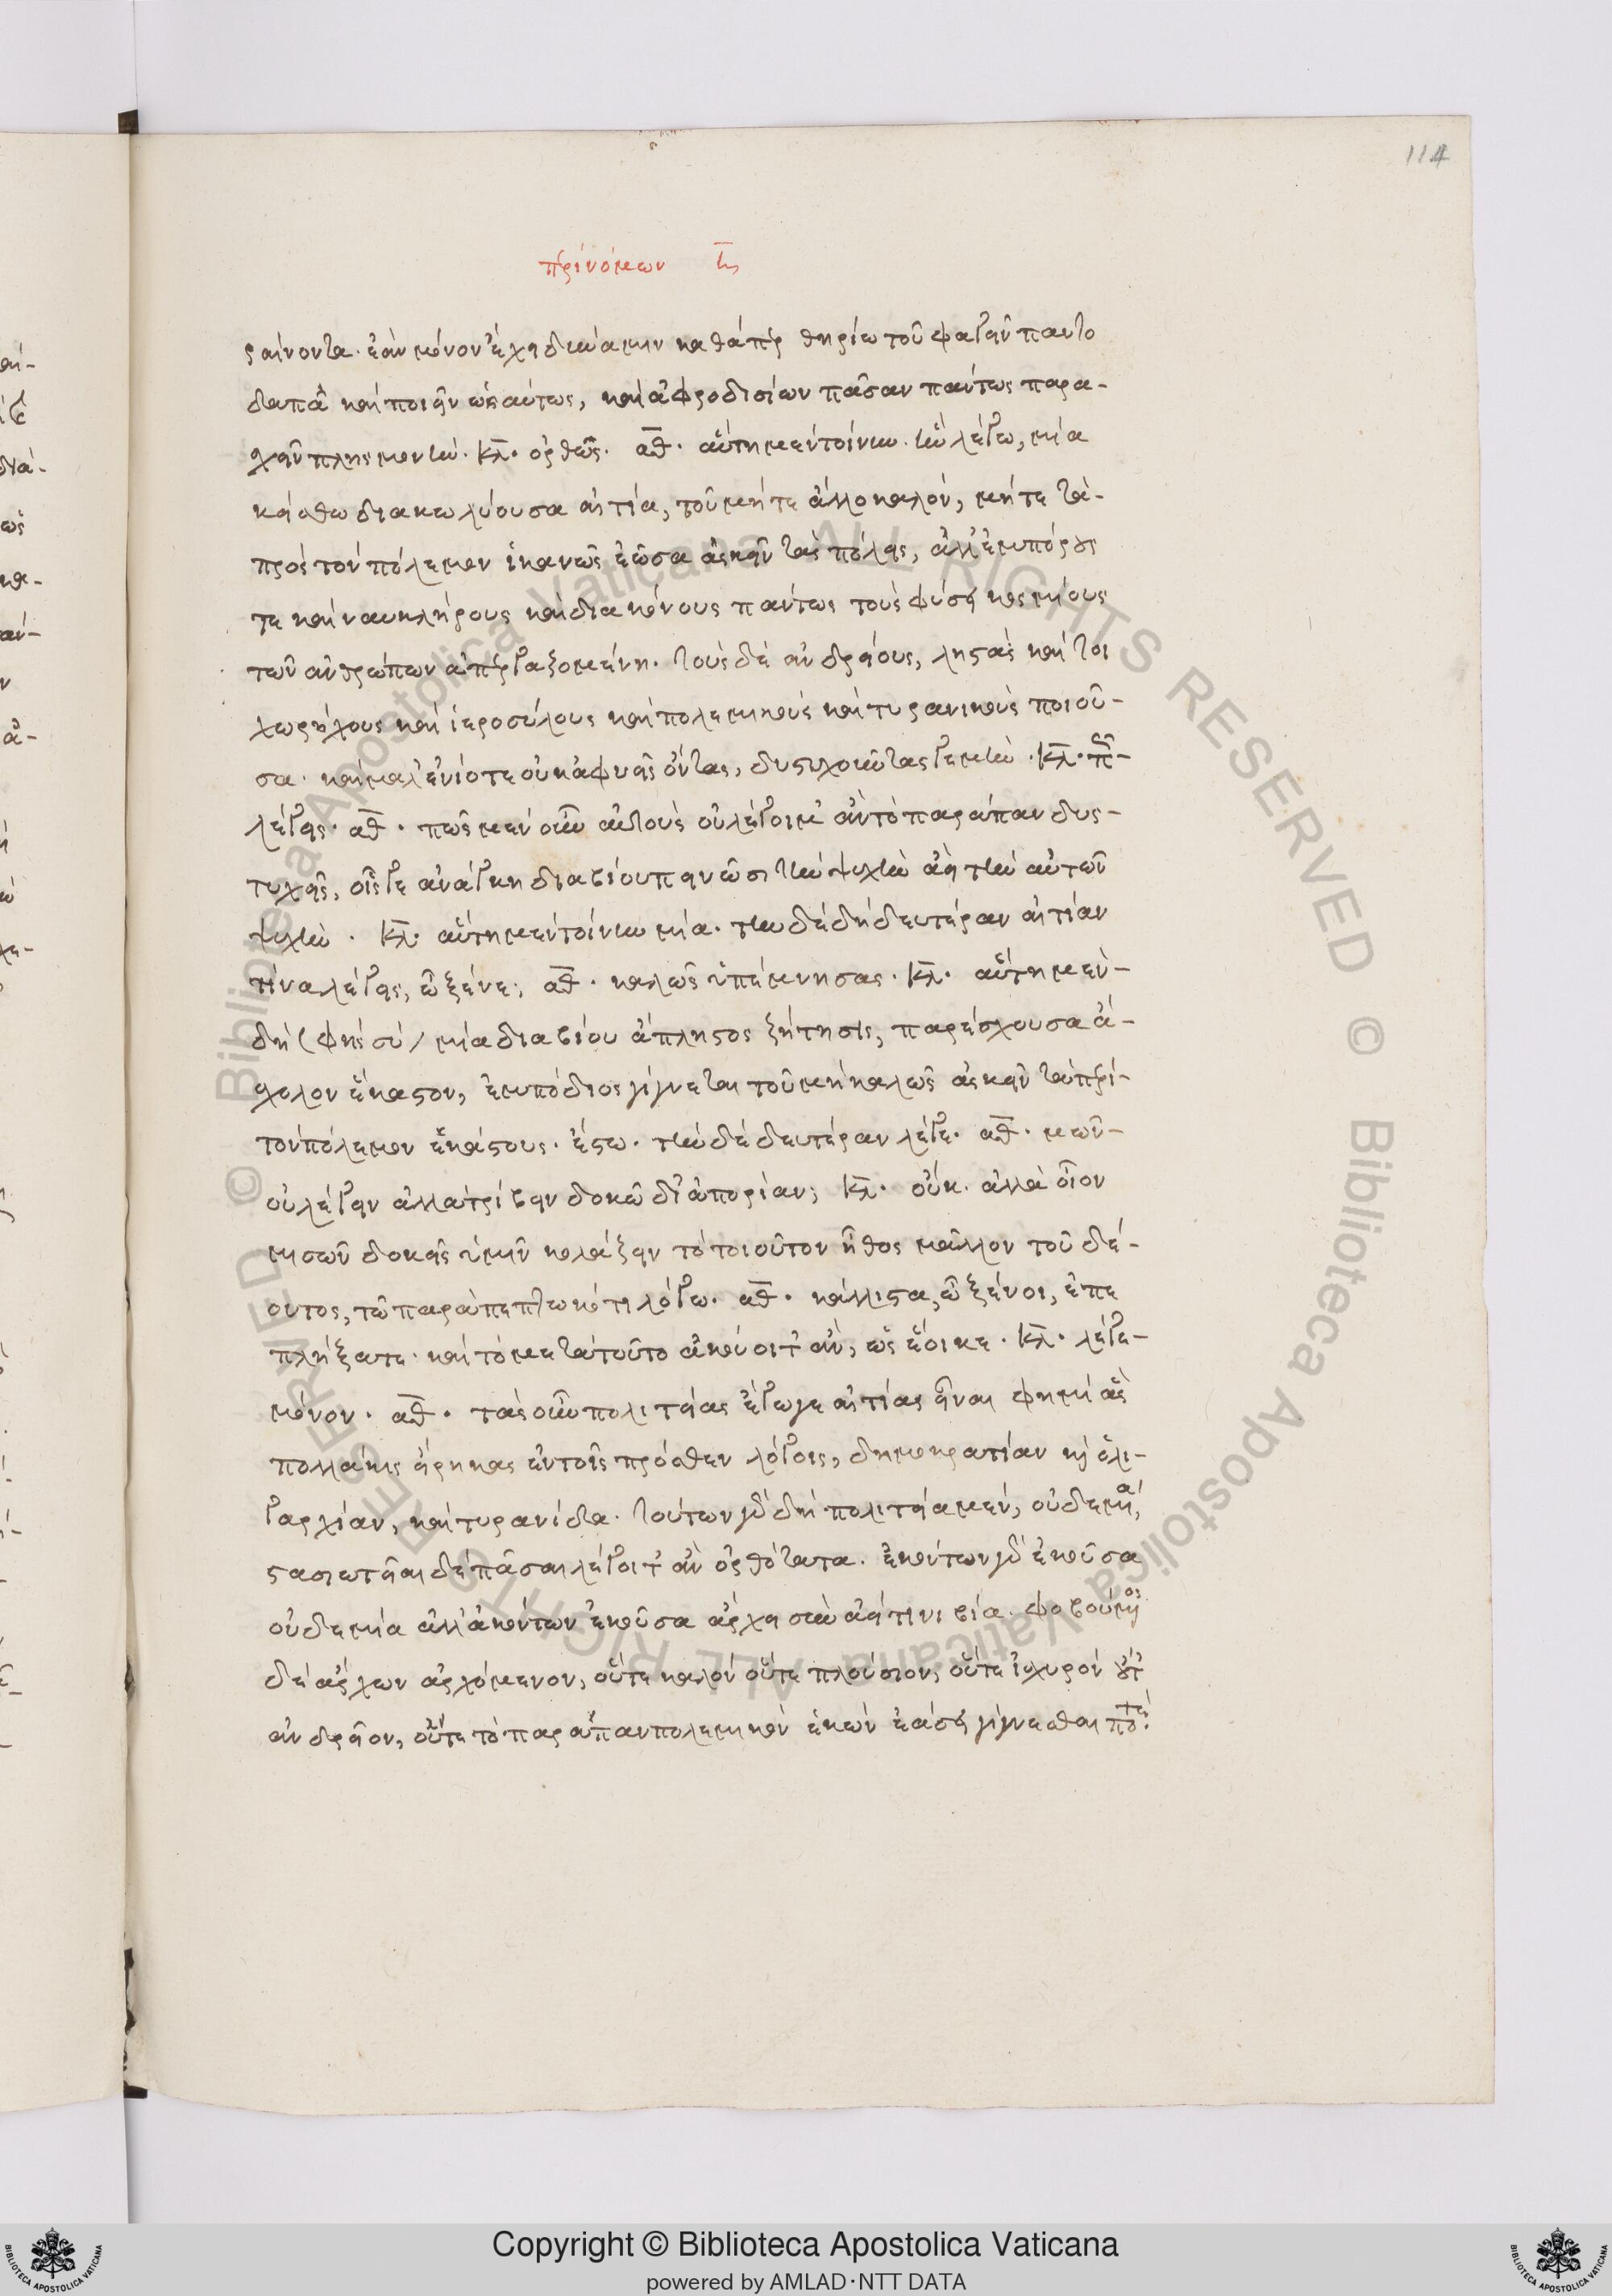 114
περὶ νόμων η
ραίνοντα. ἐὰν μόνον ἔχῃ δύναμιν καθάπερ θηρίῳ τοῦ φαγεῖν παντο
δαπὰ καὶ πιεῖν ὡσαύτως, καὶ ἀφροδισίων πᾶσαν πάντως παρα-
σχεῖν πλησμονήν. κλ. ὀρθῶς. αθ. αὕτη μὲν τοίνυν. ἣν λέγω, μία
κείσθω διακωλύουσα αἰτία, τοῦ μήτε ἄλλο καλόν, μήτε τὰ-
πρὸς τὸν πόλεμον ἱκανῶς ἐῶσα ἀσκεῖν τὰς πόλεις, ἀλλ' ἐμπόρους
τε καὶ ναυκλήρους καὶ διακόνους πάντως τοὺς φύσει κοσμίους
τῶν ἀνθρώπων ἀπεργαζομένη. τοὺς δὲ ἀνδρείους, λῃστὰς καὶ τοι
χωρύχους καὶ ἱεροσύλους καὶ πολεμικοὺς καὶ τυρανικοὺς ποιοῦ-
σα. καὶ μάλ' ἐνίοτε οὐκ ἀφυεῖς ὄντας, δυστυχοῦντάς γε μήν. κλ. πῶς-
λέγεις. αθ. πῶς μὲν οὖν αὐτοὺς οὐ λέγοιμ' ἂν τὸ παράπαν δυς-
τυχεῖς, οἷς γε ἀνάγκη διὰ βίου πεινῶσι τὴν ψυχὴν ἀεὶ τὴν αὑτῶν
ψυχήν. κλ. αὕτη μὲν τοίνυν μία. τὴν δὲ δὴ δευτέραν αἰτίαν
τίνα λέγεις, ὦ ξένε; αθ. καλῶς ὑπέμνησας. κλ. αὕτη μὲν-
δὴ (φῂς σύ) μία διὰ βίου ἄπληστος ζήτησις, παρέσχουσα ἄ-
σχολον ἕκαστον, ἐμπόδιος γίγνεται τοῦ μὴ καλῶς ἀσκεῖν τὰ περὶ-
τὸν πόλεμον ἑκάστους. ἔστω. τὴν δὲ δευτέραν λέγε. αθ. μῶν-
οὐ λέγειν ἀλλὰ τρίβειν δοκῶ δι' ἀπορίαν; κλ. οὔκ. ἀλλὰ οἷον
μισῶν δοκεῖς ὑμῖν κολάζειν τὸ τοιοῦτον ἦθος μᾶλλον τοῦ δέ-
οντος, τῷ παραπεπτωκότι λόγῳ. αθ. κάλλιστα, ὦ ξένοι, ἐπε
πλήξατε. καὶ τὸ μετὰ τοῦτο ἀκούοιτ' ἄν, ὡς ἔοικε. κλ. λέγε-
μόνον. αθ. τὰς οὖν πολιτείας ἔγωγε αἰτίας εἶναι φημὶ ἃς
πολλάκις εἴρηκας ἐν τοῖς πρόσθεν λόγοις, δημοκρατίαν καὶ ὀλι-
γαρχίαν, καὶ τυρανίδα. τούτων γὰρ δὴ πολιτεία μέν, οὐδεμία,
στασιωτεῖαι δὲ πᾶσαι λέγοιτ' ἂν ὀρθότατα. ἑκόντων γὰρ ἑκοῦσα
οὐδεμία ἀλλ' ἀκόντων ἑκοῦσα ἄρχει σὺν ἀεί τινι βίᾳ. φοβούμενος
δὲ ἄρχων ἀρχόμενον, οὔτε καλὸν οὔτε πλούσιον, οὔτε ἰσχυρὸν οὔτ'
ἀνδρεῖον, οὔτε τὸ παράπαν πολεμικὸν ἑκὼν ἐάσει γίγνεσθαί ποτε.
© Biblioteca Apostolica Vaticana ALL RIGHTS RESERVED © Biblioteca Apostolica Vaticana ALL RIGHTS RESERVED
Copyright © Biblioteca Apostolica Vaticana
powered by AMLAD·NTT DATA
BIBLIOTECA APOSTOLICA VATICANA
BIBLIOTECA APOSTOLICA VATICANA